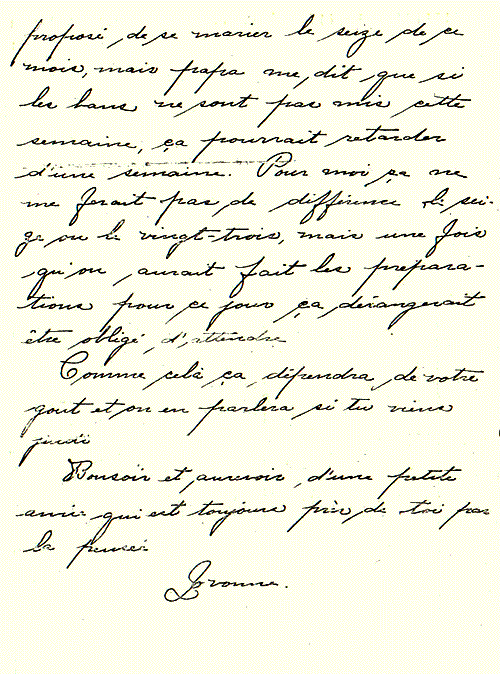 proposé de se marier le seize de ce
mois, mais papa me dit que si
les bans ne sont pas mis cette
semaine, ça pourrait retarder
d'une semaine. Pour moi ça ne
me ferait pas de différence le sei-
ze ou le vingt-trois, mais une fois
qu'on aurait fait les prépara-
tions pour ce jour ça dérangerait
être obligé d'attendre
Comme celà ça dépendra de votre
gout et on en parlera si tu viens
jeudi
Bonsoir et aurevoir d'une petite
amie qui est toujours près de toi par
la pensée
Yvonne.